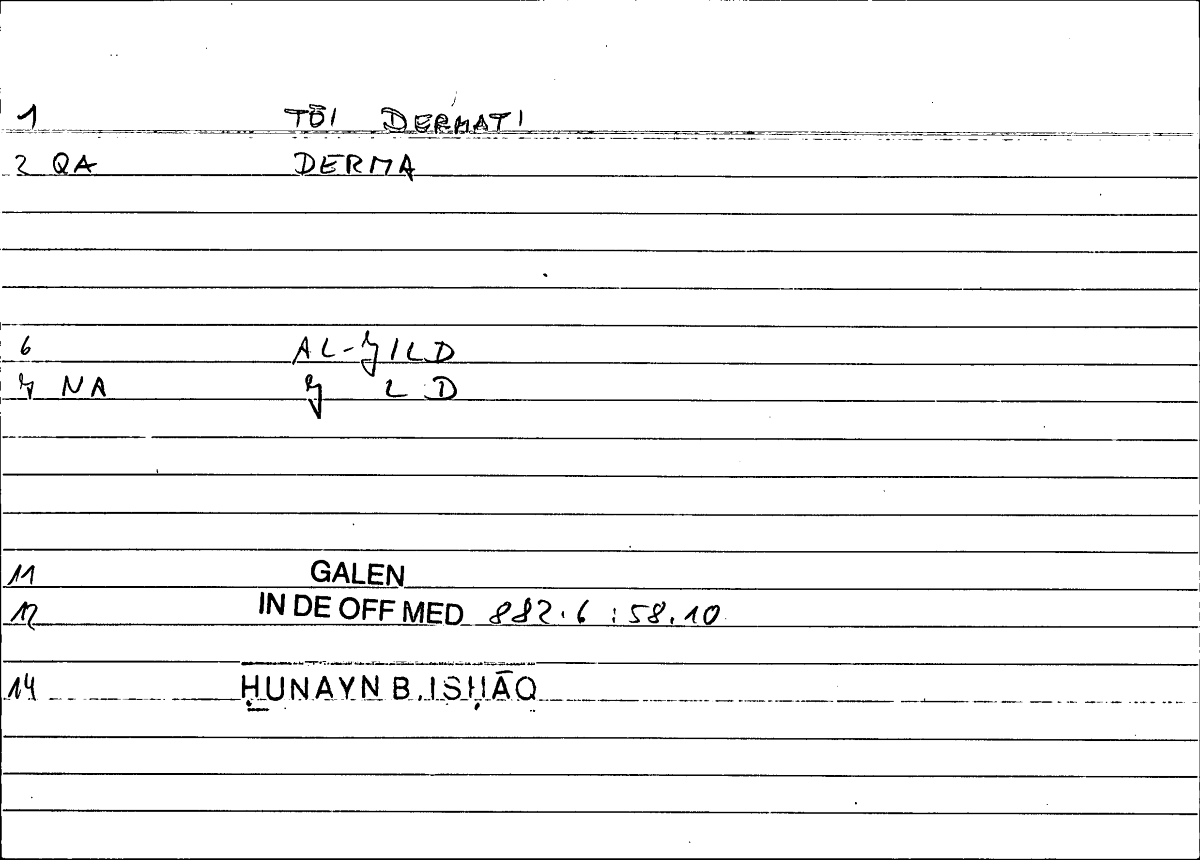 1 TŌI DERMATI
2 QA DERMA
6 AL-ǦILD
7 NA Ǧ L D
11 GALEN
12 IN DE OFF MED 882.6 : 58.10
14 ḤUNAYN B. ISḤĀQ